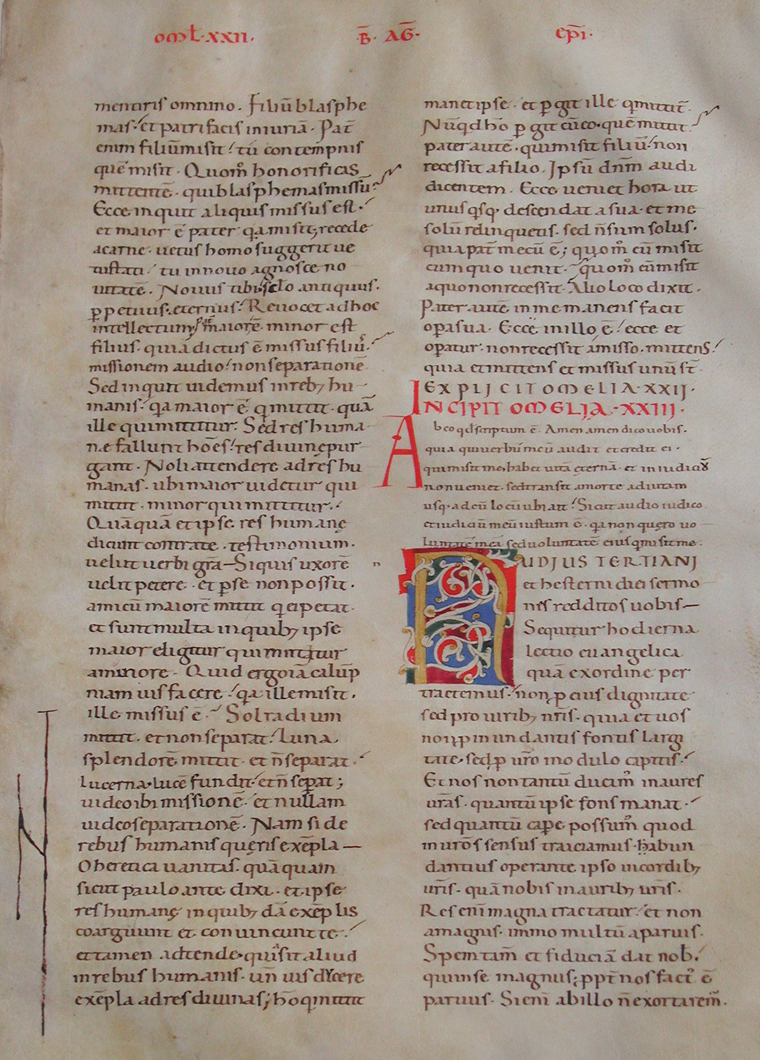 omƚ·xxii· B̄· AḠ· ep̄i·
mentiris omnino. Filiū blasphe
mas· et patri facis iniuriā· Pat̄
enim filiū misit! tū contempnis
quē misit· Quom̊ honorificas
mittentē· qui blasphemas missū
Ecce inquit aliquis missus est·
et maior ē pater q̄a misit; recede
a carne· uetus homo suggerit ue
tustatē· tu in nouo agnosce no
uitatē· Nouus tibi sęlo antiquus·
ꝑpetuus· eternus· Reuocet ad hoc
intellectum maiorē· minor est
filius· quia dictus ē missus filiū·
missionem audio! non separationē
Sed inquit uidemus in reb; hu
manis· q̄a maior ē q̄ mittit· quā
ille qui mittitur. Sed res huma
nę fallunt hōes! res diuinę pur
gant· Noli attendere ad res hu
manas· ubi maior uidetur qui
mittit· minor qui mittitur·
Quāquā et ipsę res humanę
dicunt contra te· testimonium·
uelut uerbi gr̄a— Si quis uxorē
uelit petere· et ꝑ se non possit·
amicū maiorē mittit q̄ ei petat·
et sunt multa in quib; ipse
maior eligitur qui mittitur
a minore· Quid ergo iā calūp
niam uis facere! q̄a ille misit·
ille missus ē· Sol radium
mittit· et non separat! Luna
splendorē mittit· et n̄ separat·
lucerna· lucē fundit· et n̄ sepat;
uideo ibi missionē· et nullam
uideo separationē· Nam si de
rebus humanis queris exēpla—
O heretica uanitas· quāquam
sicut paulo ante dixi· et ipsę
res humanę in quib; dā exēplis
coarguunt et conuincunt te·
et tamen adtende· qui sit aliud
in rebus humanis· un̄ uis ducere
exēpla ad res diuinas; hō q̄ mittit
manet ipse· et ꝑgit ille q̄ mittit̄
Nūqd hō ꝑgit cū eo· quē mittit·
pater autē· qui misit filiū! non
recessit a filio· Ipsū dn̄m audi
dicentem· Ecce ueniet hora ut
unus qsq; descendat a sua· et me
solū relinquetis· sed n̄ sum solus·
quia pat̄ mecū ē; quom̊ cū misit
cum quo uenit· quom̊ eū misit
a quo non recessit· Alio loco dixit·
Pater autē in me manens facit
opa sua· Ecce in illo ē! ecce et
opatur· non recessit a misso· mittens!
quia et mittens et missus unū st
EXPLICIT OMELIA·XXII·
INCIPIT OMELIA·XXIII·
Ab eo qd scriptum ē· Amen amen dico uobis·
quia qui uerbū meū audit et credit ei·
qui misit me· habet uitā eternā· et in iudiciū
non ueniet· sed transit a morte ad uitam
usq; ad eū locū ubi ait! Sicut audio iudico
et iudiciū meū iustum ē· q̄a non quero uo
luntatē meā sed uoluntatē eius q̄ misit me·
AUDIUS TERTIANI
et hesterni diei sermo
nes redditos uobis—
Sequitur hodierna
lectio euangelica
quā ex ordine per
tractemus· non ꝓ eius dignitate
sed pro uirib; nr̄is· quia et uos
non ꝓ inundantis fontis largi
tate· sed ꝓ uro modulo capitis·
Et nos non tantū dicim̊ in aures
uras· quantū ipse fons manat·
sed quantū capę possum̊ quod
in uros sensus traiciamus· habun
dantius operante ipso in cordib;
uris· quā nobis in aurib; uris·
Res eni magna tractatur! et non
a magnis· immo multū a paruis·
Spem tam̄ et fiduciā dat nob·
qui nr̄ se magnus; ppt nos fact̊ ē
paruus· Si eni ab illo n̄ exortarem̊·